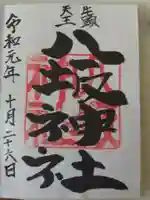 天王
八坂神社
令和元年 十月二十六日